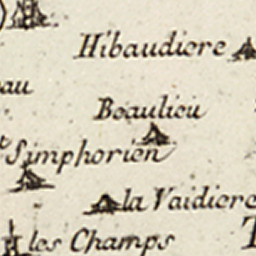 Hibaudiere
au
Beaulieu
t Simphorien
la Vaidiere
les Champs
T